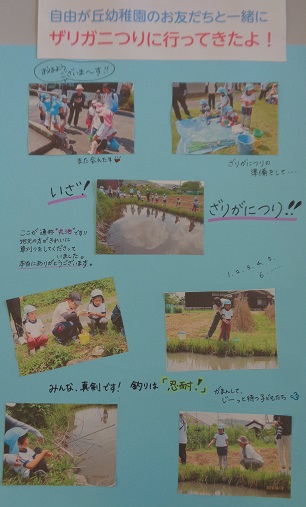 自由が丘幼稚園のお友だちと一緒に
ザリガニつりに行ってきたよ！
おはようございま〜す!!
また会えたね
ざりがにつりの
準備をして…
いざ!
ざりがにつり!!
ここが通称
地元の方がきれいに
草刈りをしてくださって
いました。
本当にありがとうございます。
1、2、3、4、5、
6……
みんな、真剣です! 釣りは「忍耐!」
がまんして、
じーっと待つ子どもたち